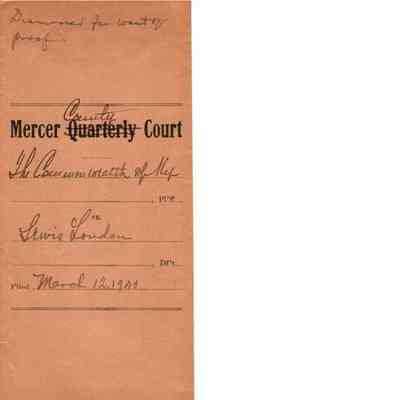 Dismissed for want of
proof
County
Mercer Quarterly Court
The Commonwealth of Ky
Lewis London
March 12, 19